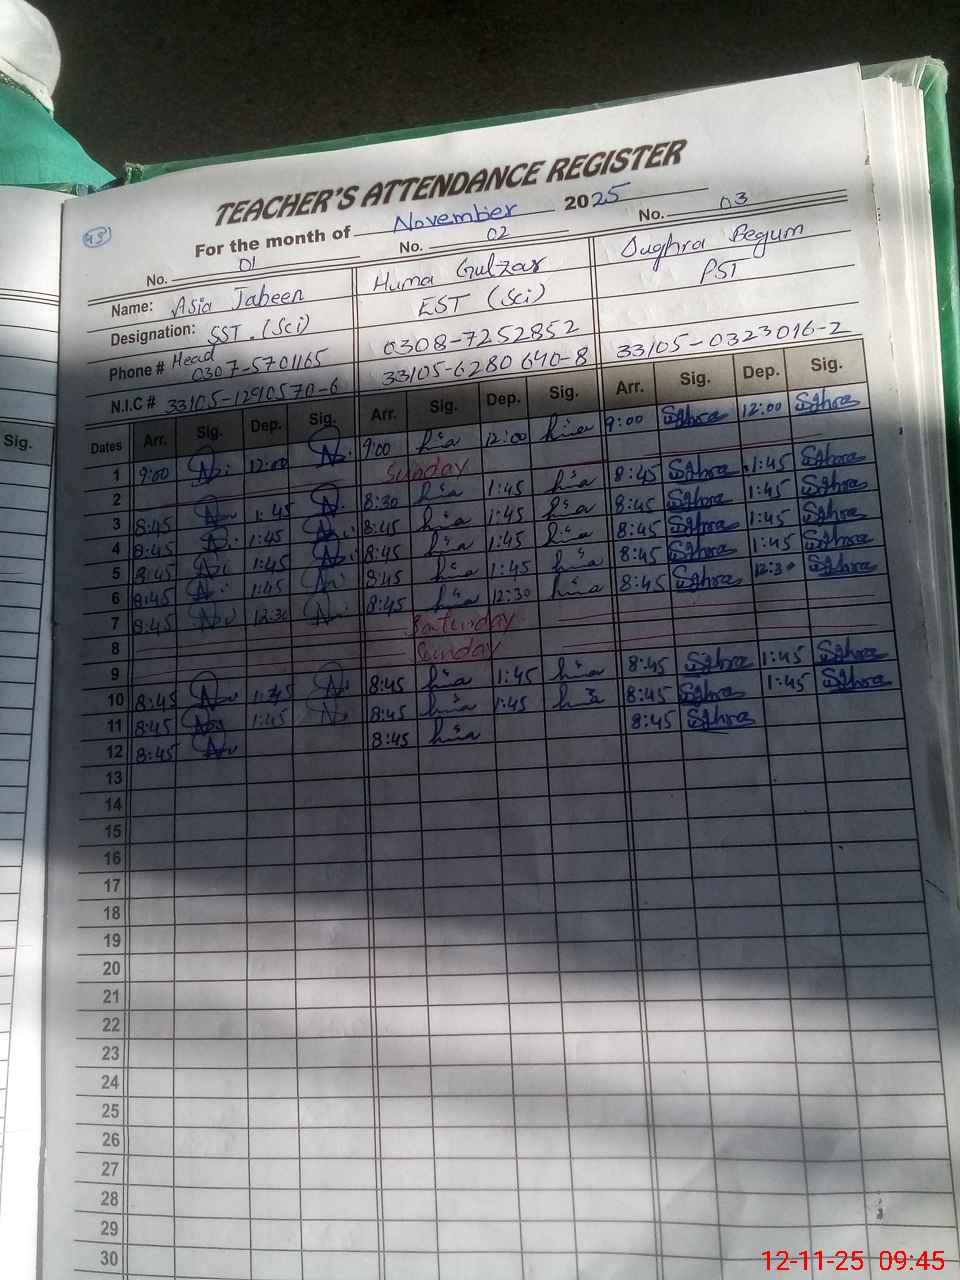 TEACHER'S ATTENDANCE REGISTER
45
For the month of November 2025
No. 01 No. 02 No. 03
Name: Asia Jabeen Huma Gulzar Sughra Begum
Designation: SST. (Sci) EST (Sci) PST
Head
Phone # 0307-5701165 0308-7252852
N.I.C # 33105-1291057 0-6 33105-6280640-8 33105-0323016-2
Sig.
Dates Arr. Sig. Dep. Sig. Arr. Sig. Dep. Sig. Arr. Sig. Dep. Sig.
1 9:00 12:00 9:00 12:00 9:00 Sghra 12:00 Sghra
2 Sunday
3 8:45 1:45 8:30 1:45 8:45 Sghra 1:45 Sghra
4 8:45 1:45 8:45 1:45 8:45 Sghra 1:45 Sghra
5 8:45 1:45 8:45 1:45 8:45 Sghra 1:45 Sghra
6 8:45 1:45 8:45 1:45 8:45 Sghra 1:45 Sghra
7 8:45 12:30 8:45 12:30 8:45 Sghra 12:30 Sghra
8 Saturday
9 Sunday
10 8:45 1:45 8:45 1:45 8:45 Sghra 1:45 Sghra
11 8:45 1:45 8:45 1:45 8:45 Sghra 1:45 Sghra
12 8:45 8:45 8:45 Sghra
13
14
15
16
17
18
19
20
21
22
23
24
25
26
27
28
29
30
12-11-25 09:45